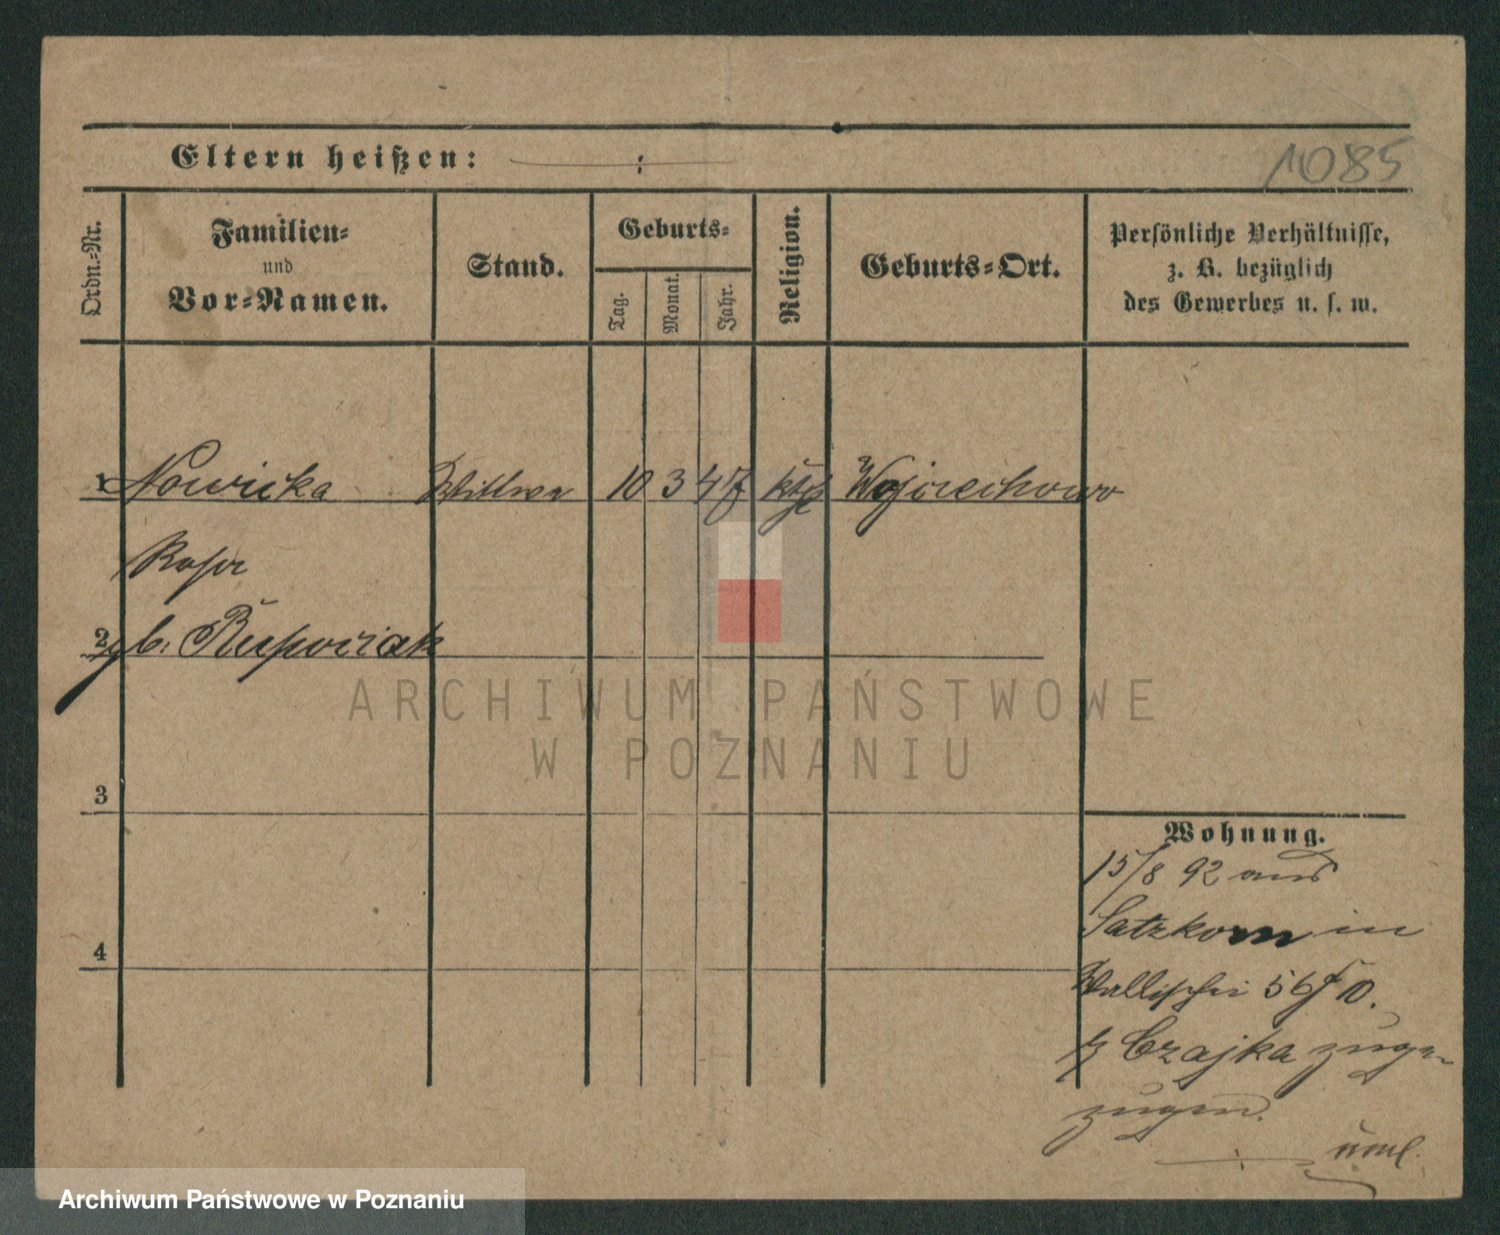 Eltern heißen:
1085
Ordn.-Nr.
Familien-
und
Vor-Namen.
Stand.
Geburts-
Tag.
Monat.
Jahr.
Religion.
Geburts-Ort.
Persönliche Verhältnisse,
z. B. bezüglich
des Gewerbes u. s. w.
1 Nowicka Wittwe 10 3 47 kth Wojciechowo
Rosa
2 gb.
3
4
Wohnung.
15/8 92 aus
in
Wallischei 56
Czajka zuge-
zogen.
ARCHIWUM PAŃSTWOWE
W POZNANIU
Archiwum Państwowe w Poznaniu